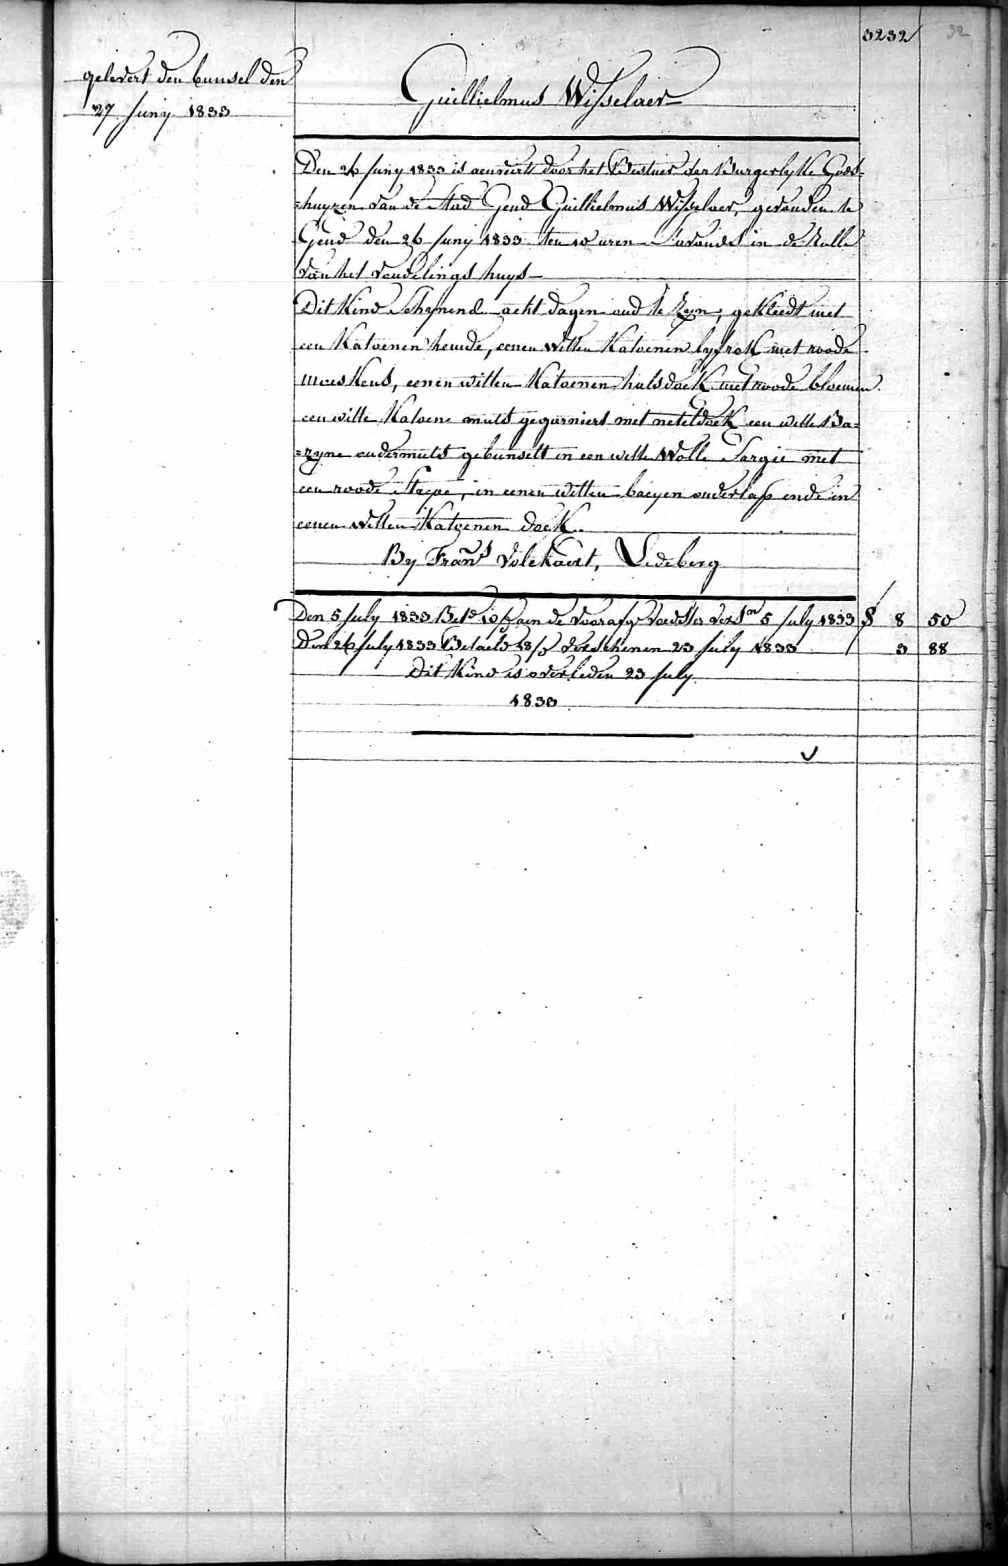 3232
32
gelevert den bunsel den
27 Juny 1833
Guillielmus Wisselaer
Den 26 Juny 1833 is aenveirt door het Bestuer der Burgerlyke Gods=
=huyzen van de Stad Gend Guillielmus Wisselaer, gevonden te
Gend den 26 Juny 1833 ten 10 uren s'avonds in de Rolle
van het vondelings huys
Dit Kind Schynend acht dagen oud te Zyn, gekleedt met
een Katoenen hemde, eenen witten Katoenen lyfrok met roode
moeskens, eenen witten Katoenen halsdoek met roode bloemen
een witte Katoene muts gegarniert met neteldoek een witte Ba=
=zyne ondermuts gebunselt in een witte Wolle Sargie met
een roode Strepe, in eenen witten baeyen onderlap ende in
eenen witten Katoenen doek.
By Frans Volckaert, Ledeberg
Den 5 July 1833 Betd aen de Voorafge Voedster 5 July 1833 8 50
Den 26 July 1833 Betaeld 18/ Verschenen 23 July 1833 3 88
Dit Kind is overleden 23 July
1833